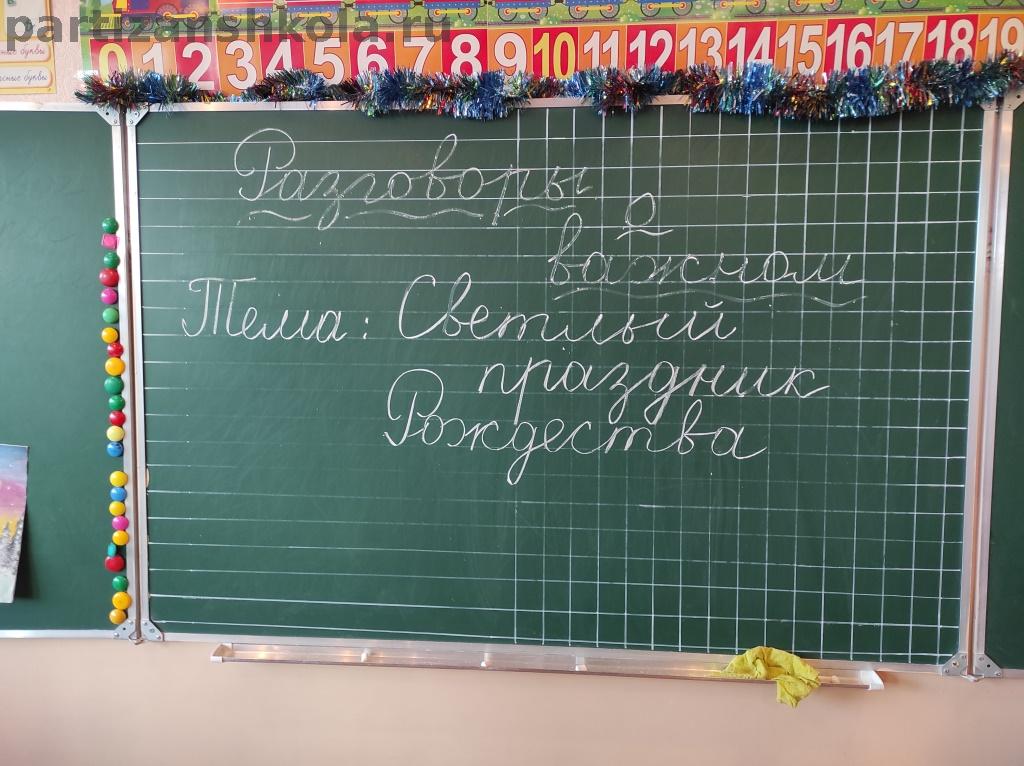 partizanshkola.ru
0 1 2 3 4 5 6 7 8 9 10 11 12 13 14 15 16 17 18 19
буквы
буквы
Разговоры
о
важном
Тема: Светлый
праздник
Рождества